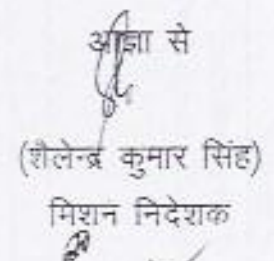 आज्ञा से
(शैलेन्द्र कुमार सिंह)
मिशन निदेशक